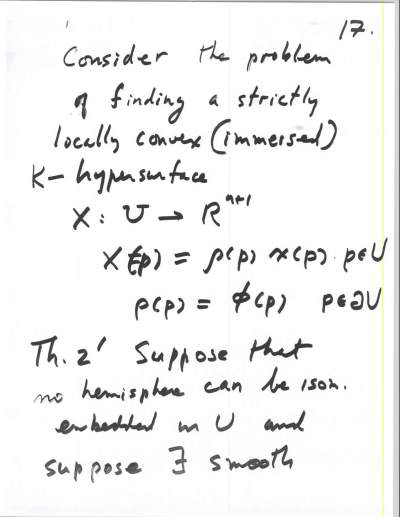 17.
Consider the problem
of finding a strictly
locally convex (immersed)
K- hypersurface
X : U → R^{n+1}
X(p) = ρ(p) x(p) p∈U
ρ(p) = φ(p) p∈∂U
Th. 2' Suppose that
no hemisphere can be isom.
embedded in U and
suppose ∃ smooth